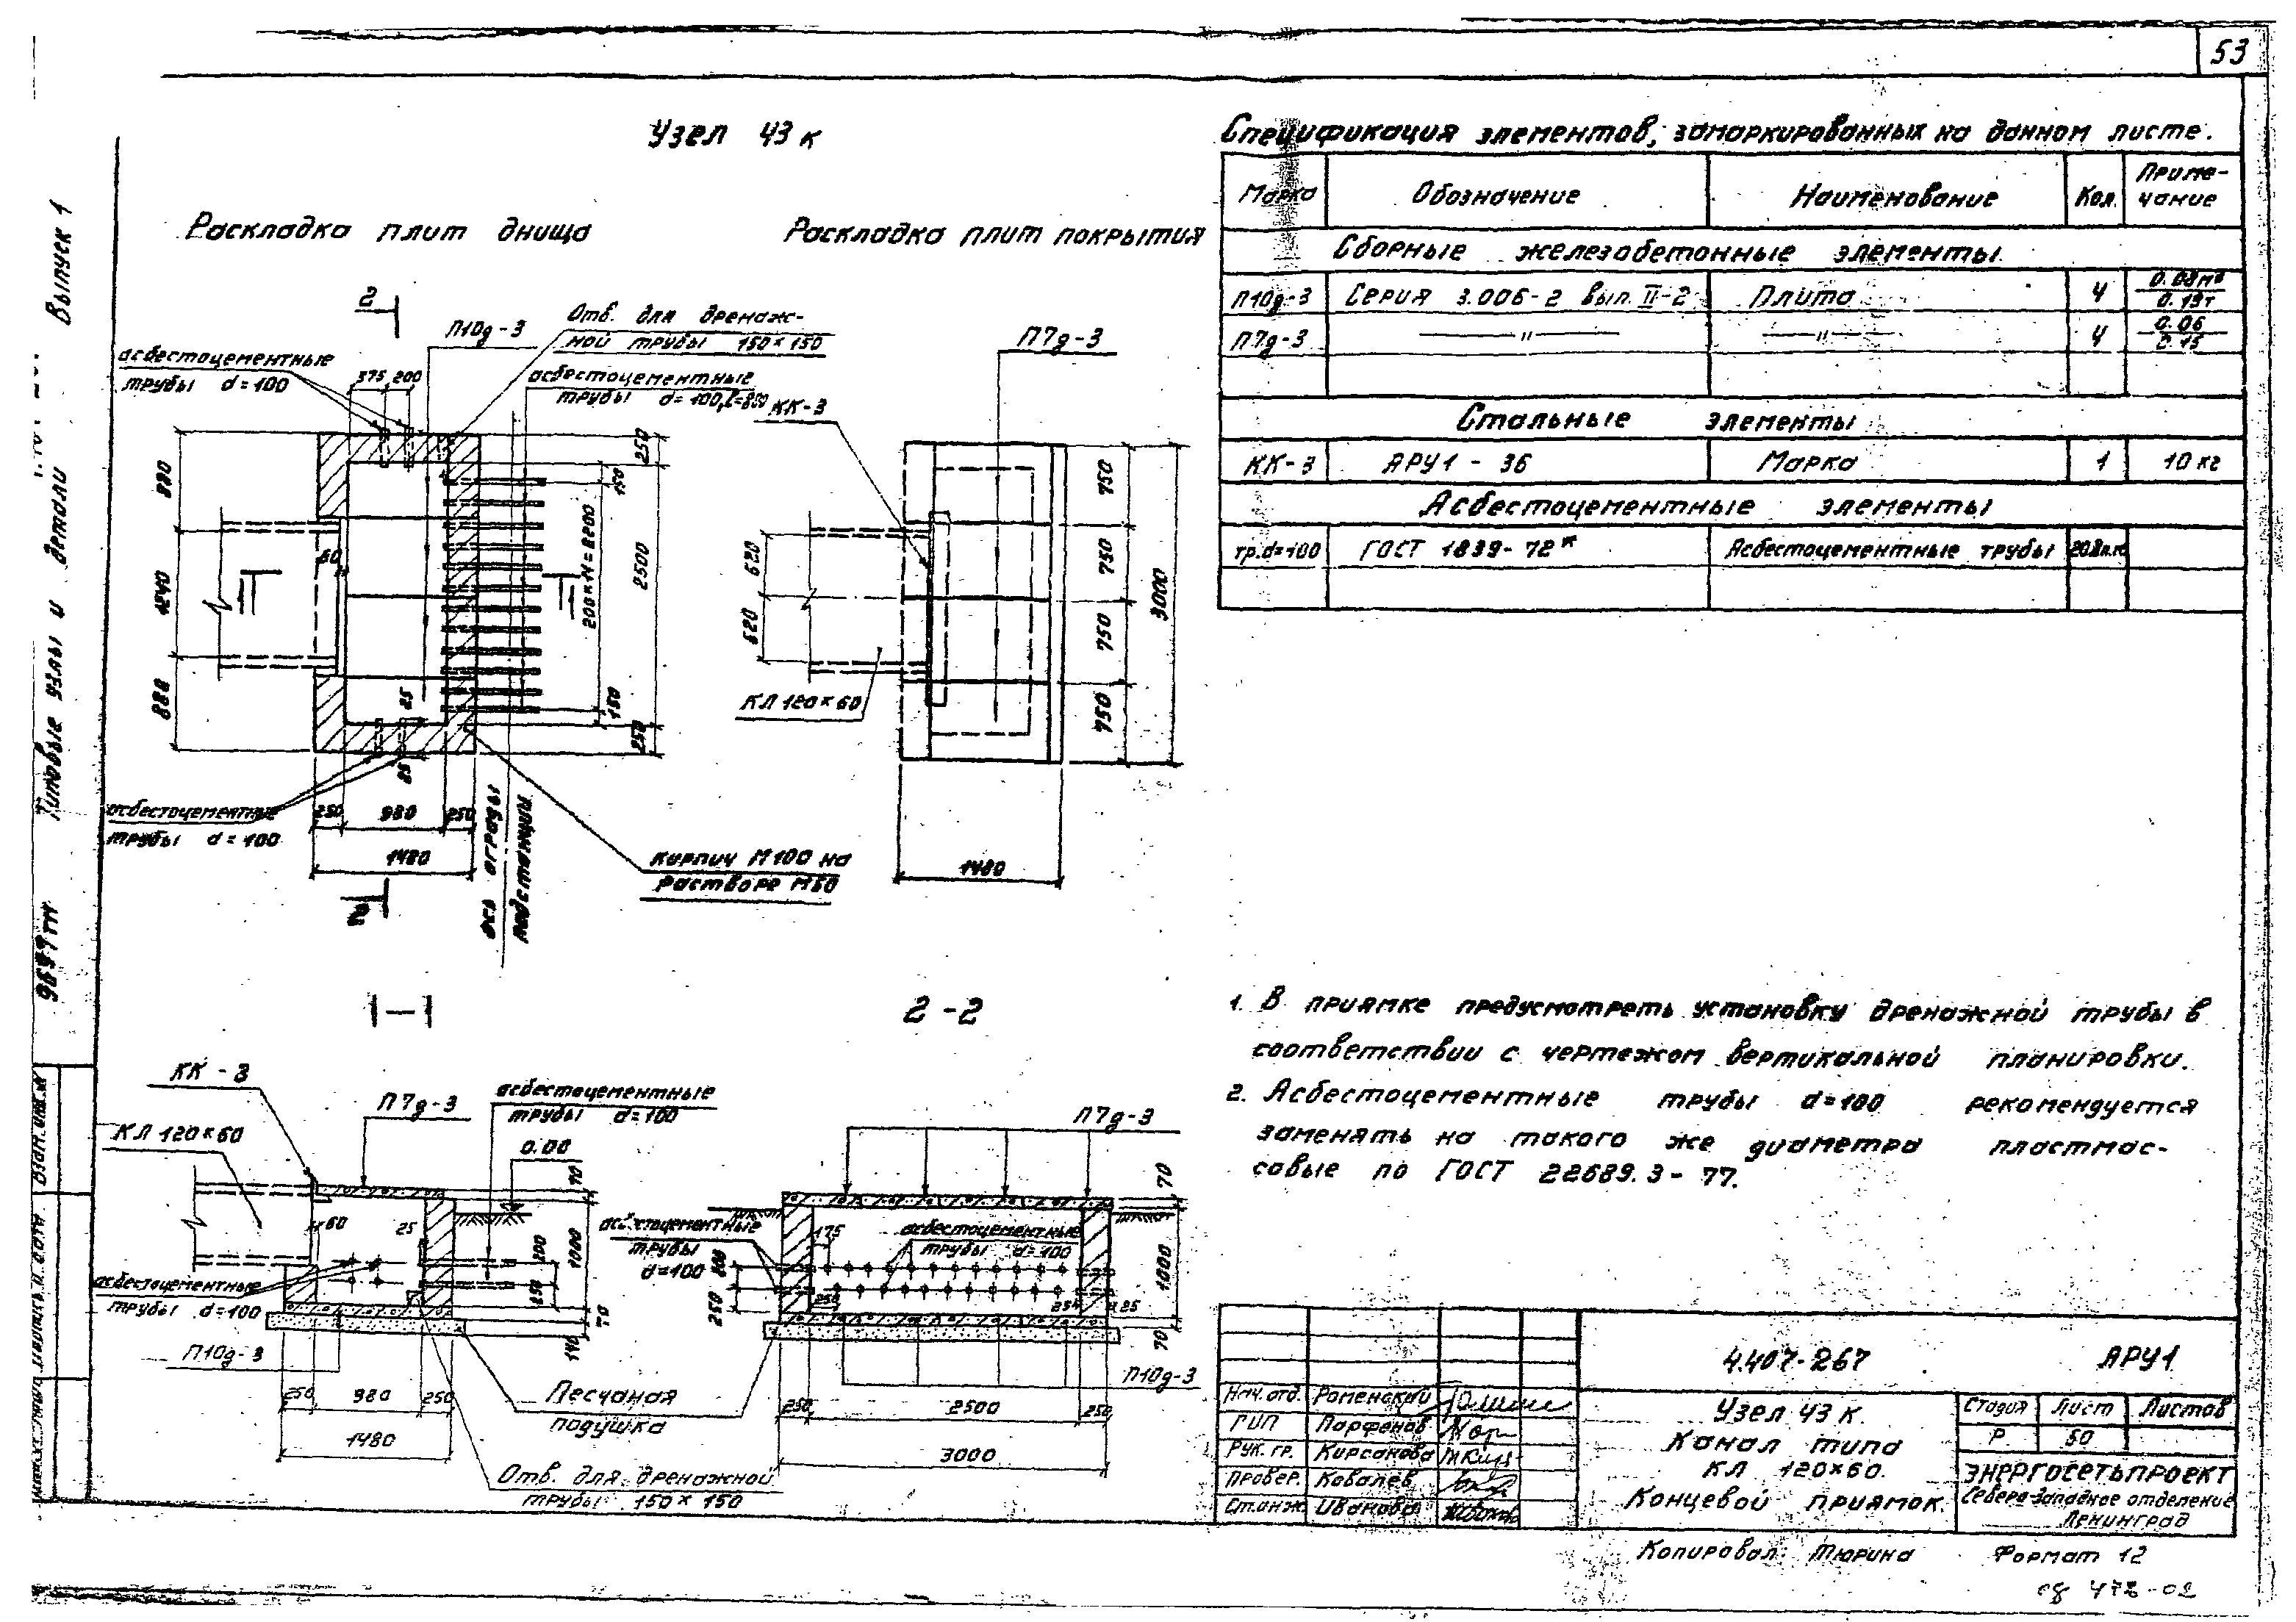 53
Узел 43 к
Раскладка плит днища
Раскладка плит покрытия
2
П10д-3
Отв. для дренаж-
ной трубы 150×150
асбестоцементные
трубы d=100
375 200
асбестоцементные
трубы d=100, ℓ=850
КК-3
П7д-3
880
1240
880
60
250
150
200×11=2200
2500
150
250
25
25
асбестоцементные
трубы d=100
250 980 250
1480
2
ось ограды
подстанции
кирпич М100 на
растворе М50
620
620
КЛ 120×60
750
750
750
750
3000
1480
Спецификация элементов, замаркированных на данном листе.
Марка Обозначение Наименование Кол. Приме-
чание
Сборные железобетонные элементы
П10д-3 Серия 3.006-2 вып. II-2 Плита 4
П7д-3 —"— —"— 4 0.06
0.15
Стальные элементы
КК-3 АРУ1-36 Марка 1 10 кг
Асбестоцементные элементы
тр.d=100 ГОСТ 1839-72* Асбестоцементные трубы
1-1
КК-3
КЛ 120×60
П7д-3
асбестоцементные
трубы d=100
0.00
70
60
25
200
1000
250
70
140
асбестоцементные
трубы d=100
П10д-3
250 980 250
1480
Песчаная
подушка
Отв. для дренажной
трубы 150×150
2-2
П7д-3
асбестоцементные
трубы
d=100
175
асбестоцементные
трубы d=100
200
250
250
25
25
70
1000
70
П10д-3
250 2500 250
3000
1. В приямке предусмотреть установку дренажной трубы в
соответствии с чертежом вертикальной планировки.
2. Асбестоцементные трубы d=100 рекомендуется
заменять на такого же диаметра пластмас-
совые по ГОСТ 22689.3-77.
4.407-267 АРУ1
Нач. отд. Роменский
ГИП Парфенов
Рук. гр. Кирсанова
Провер. Ковалев
Ст.инж. Иванова
Узел 43 к.
Канал типа
КЛ 120×60.
Концевой приямок.
Стадия Лист Листов
Р 50
ЭНЕРГОСЕТЬПРОЕКТ
Северо-Западное отделение
Ленинград
Копировал: Тюрина Формат 12
Выпуск 1
Типовые узлы и детали
9697тм
Взам. инв. №
Подпись и дата